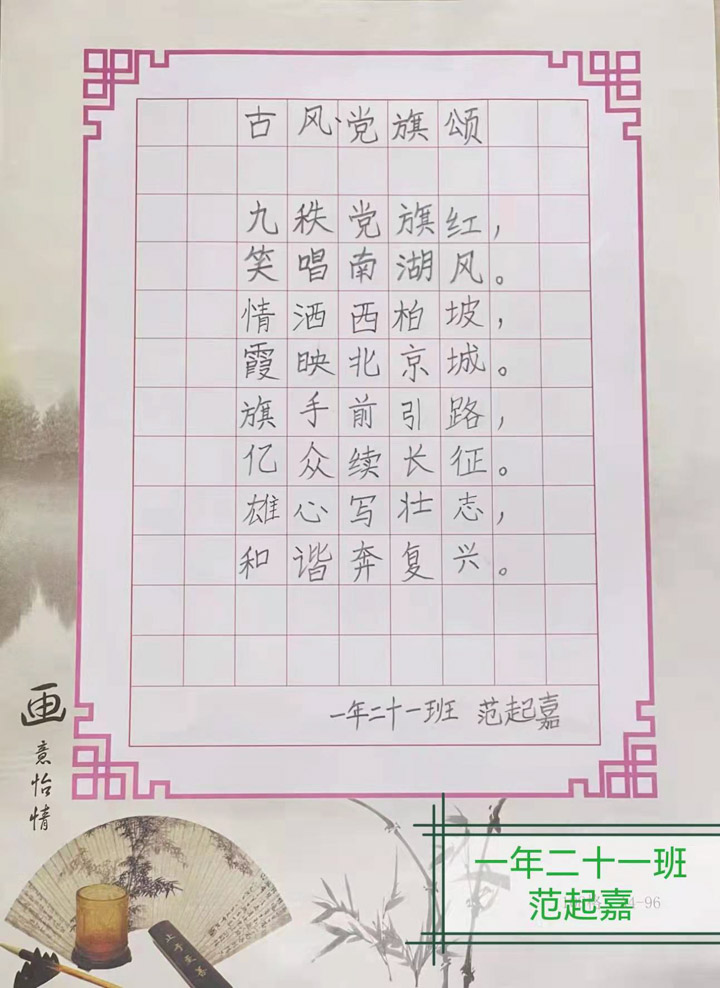 古风·党旗颂
九秩党旗红，
笑唱南湖风。
情洒西柏坡，
霞映北京城。
旗手前引路，
亿众续长征。
雄心写壮志，
和谐奔复兴。
一年二十一班 范起嘉
画
意怡情
一年二十一班
范起嘉
4-96